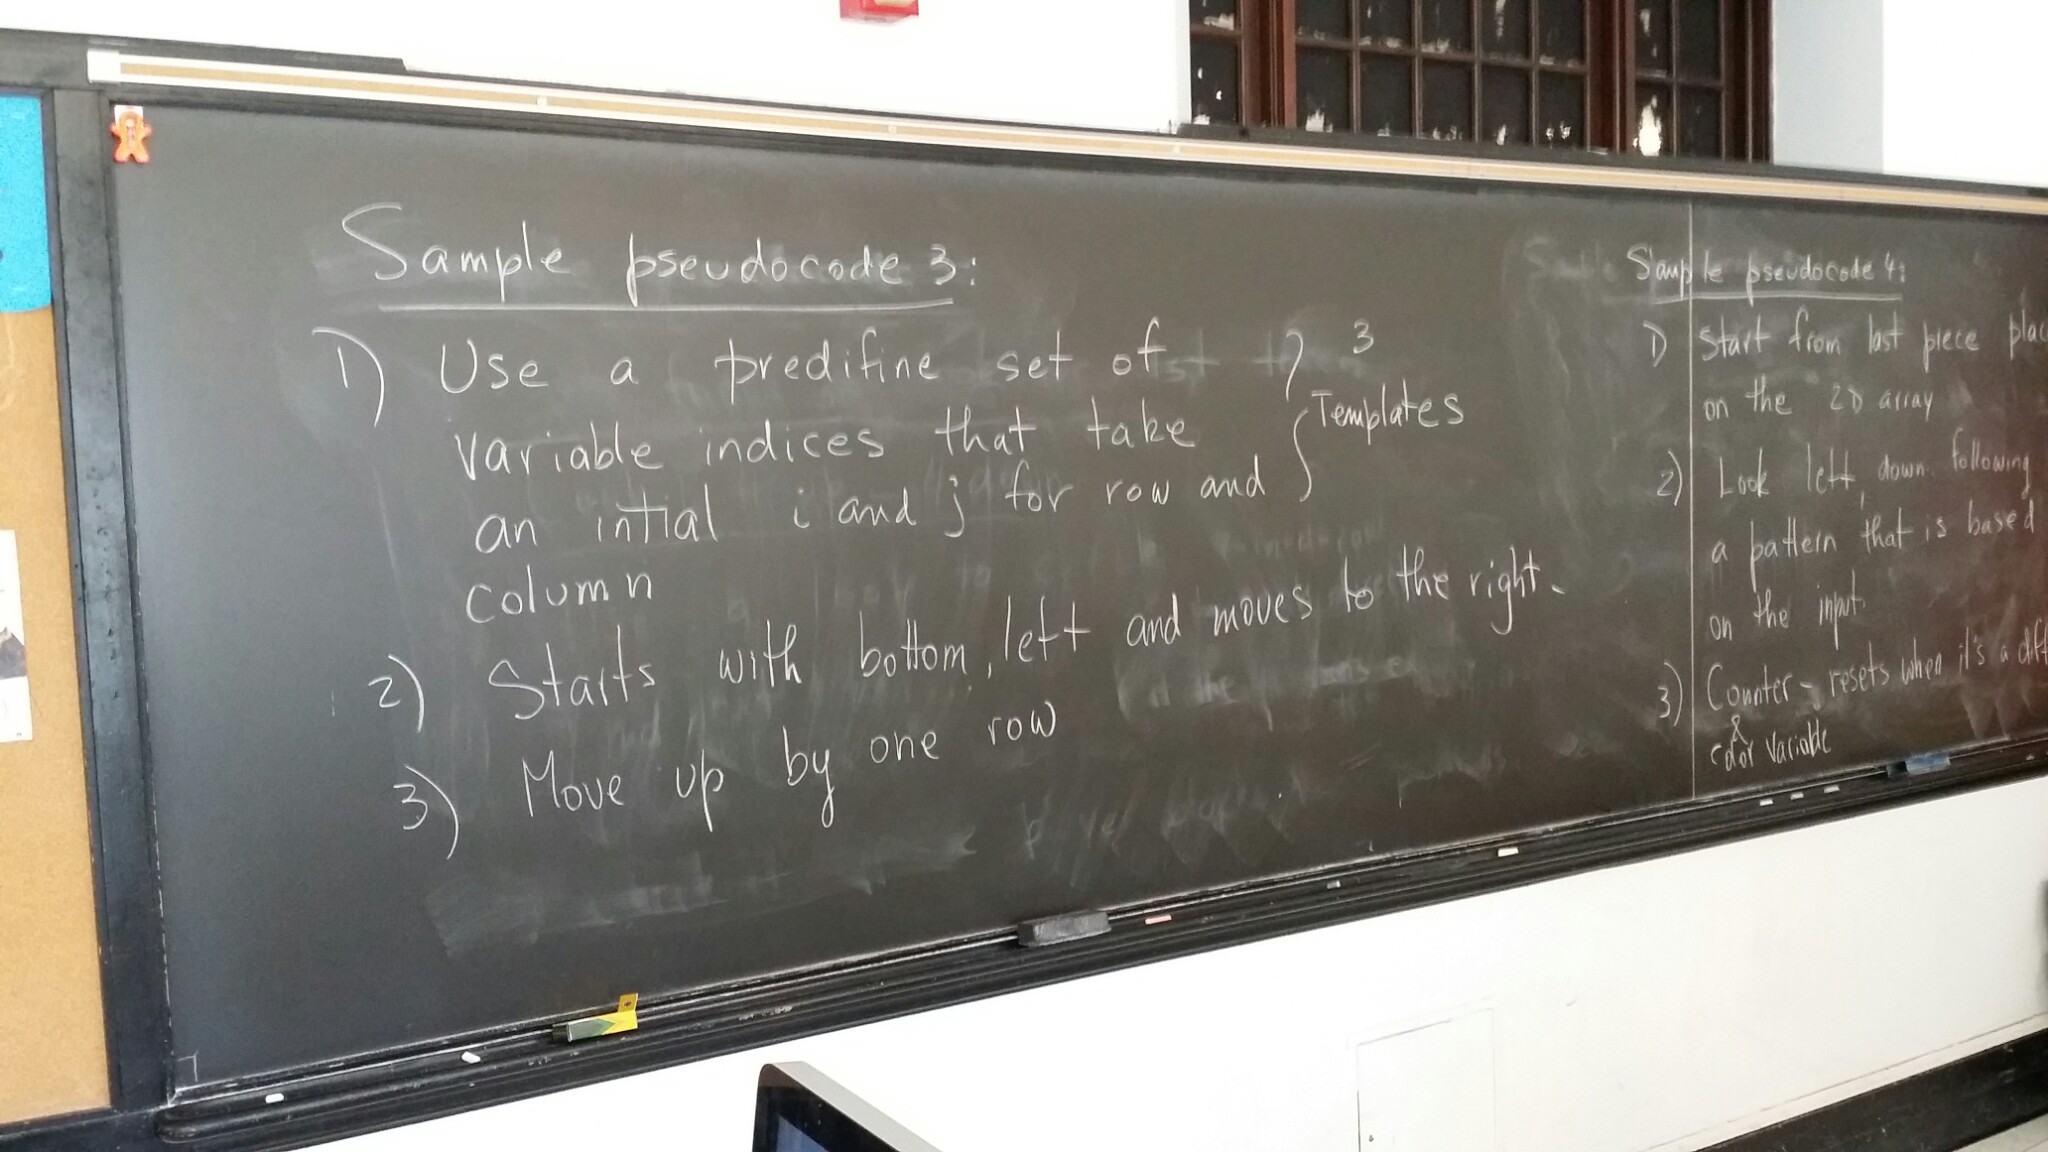 Sample pseudocode 3:
1) Use a predifine set of
variable indices that take
an intial i and j for row and
column
3
Templates
2) Starts with bottom, left and moves to the right.
3) Move up by one row
Sample pseudocode 4:
1) Start from last piece plac
on the 2D array
2) Look left, down following
a pattern that is based
on the input.
3) Counter - resets when it's a diff
&
color variable